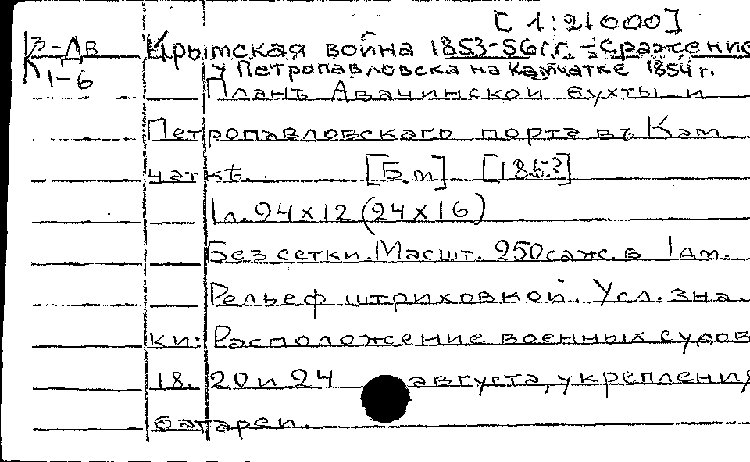 [1:21000]
К 3-Дв Крымская война 1853-56г.г. - Сражение
1-6 у Петропавловска на Камчатке 1854 г.
Планъ Авачинской бухты и
Петропавловскаго порта въ Кам
чаткѣ. [Б.м] [185.?]
1 л. 24 х 12 (24 х 16)
Без сетки. Масшт. 250 саж. в 1 дм.
Рельеф штриховкой. Усл. зна.
ки: Расположение военных судов
18. 20 и 24 августа, укрепления
батареи.